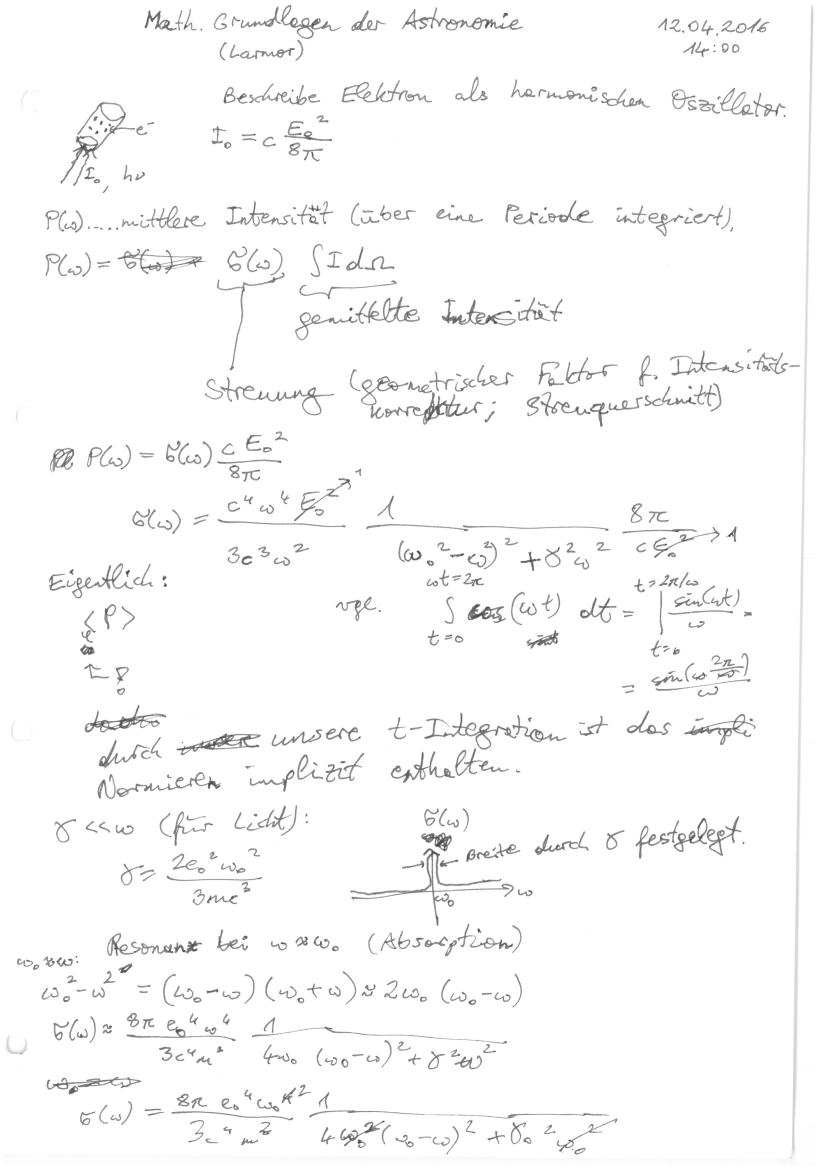 Math. Grundlagen der Astronomie 12.04.2016
(Larmor) 14:00
Beschreibe Elektron als harmonischen Oszillator.
e⁻ I₀ = c E₀²/8π
I₀, hν
P(ω).....mittlere Intensität (über eine Periode integriert),
P(ω) = σ(ω) ∫I dΩ
gemittelte Intensität
Streuung (geometrischer Faktor f. Intensitäts-
korrektur; Streuquerschnitt)
P(ω) = σ(ω) c E₀²/8π
σ(ω) = c⁴ω⁴E₀²/3c³ω² 1/((ω₀²-ω²)² + γ²ω²) 8π/cE₀² → 1
Eigentlich:
<P> vgl. ∫ t=0 ωt=2π cos(ωt) dt = | t=0 t=2π/ω sin(ωt)/ω =
= sin(ω 2π/ω)/ω
durch unsere t-Integration ist das
Normieren implizit enthalten.
γ<<ω (für Licht): σ(ω)
γ = 2e₀²ω₀²/3mc³ Breite durch γ festgelegt.
ω₀ ω
Resonanz bei ω≈ω₀ (Absorption)
ω₀≈ω:
ω₀²-ω² = (ω₀-ω)(ω₀+ω) ≈ 2ω₀ (ω₀-ω)
σ(ω) ≈ 8π e₀⁴ω⁴/3c⁴m² 1/(4ω₀ (ω₀-ω)² + γ²ω²)
σ(ω) = 8π e₀⁴ω₀²/3c⁴m² 1/(4ω₀²(ω₀-ω)² + γ₀²ω₀²)